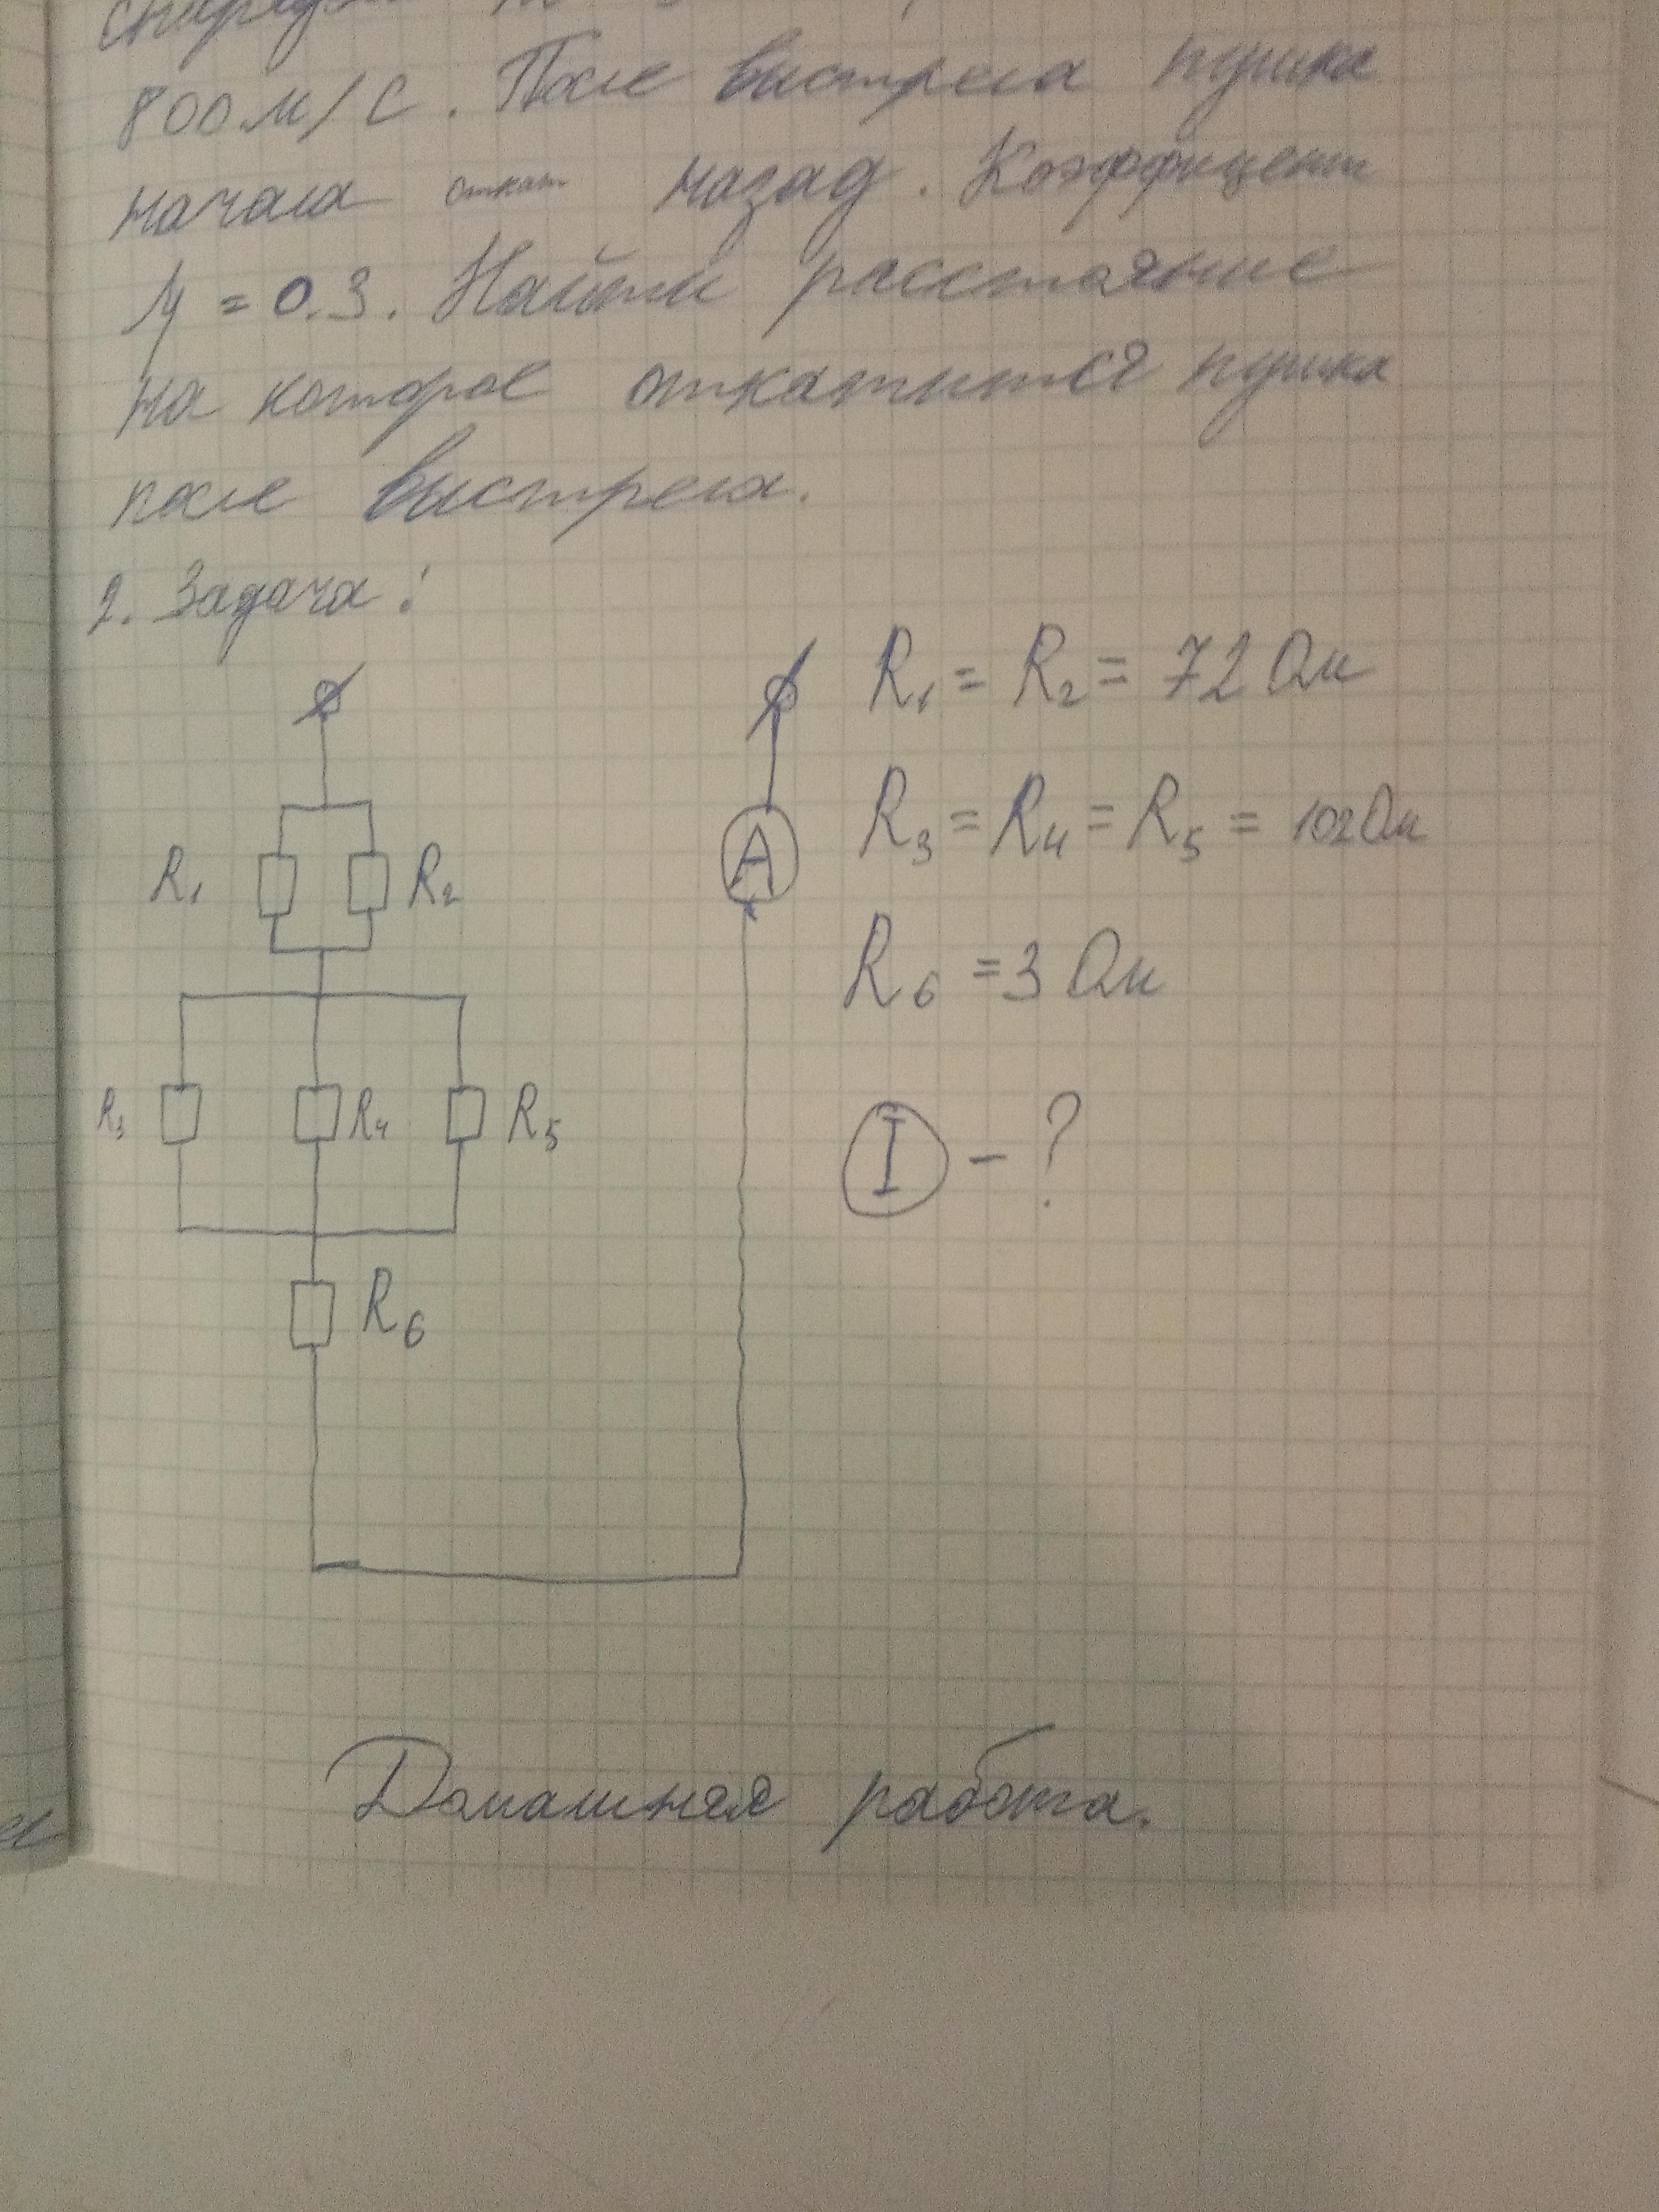 800 м/с. После выстрела пушка
начала откат назад. Коэффицент
μ = 0.3. Найти расстояние
на которое откатится пушка
после выстрела.
2. Задача:
R1 = R2 = 72 Ом
R3 = R4 = R5 = 102 Ом
R6 = 3 Ом
I - ?
A
R1
R2
R3
R4
R5
R6
Домашняя работа.